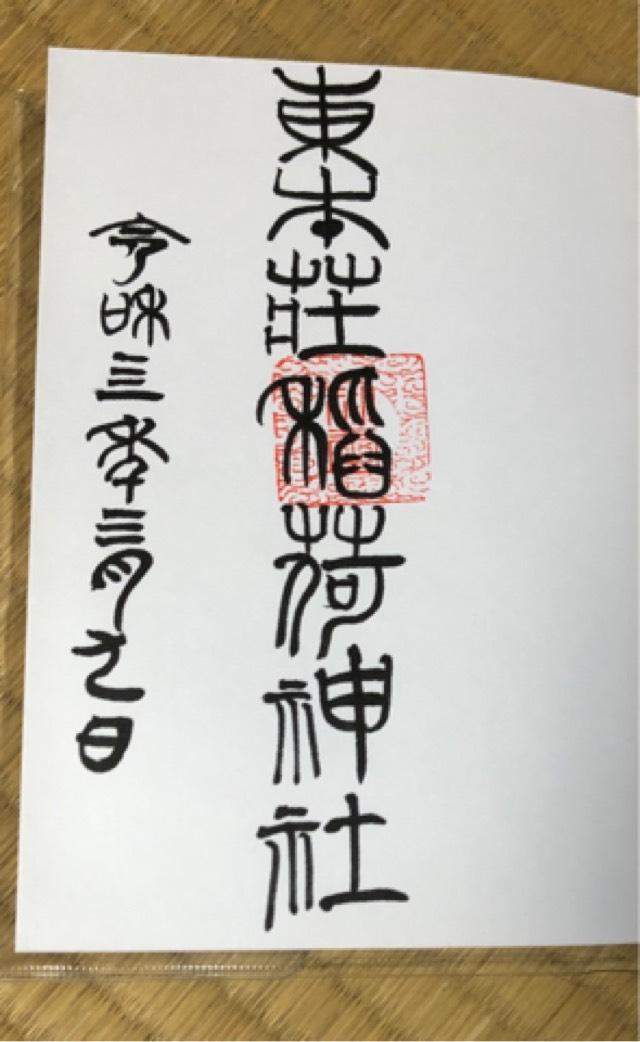 東本荘稲荷神社
令和三年三月日